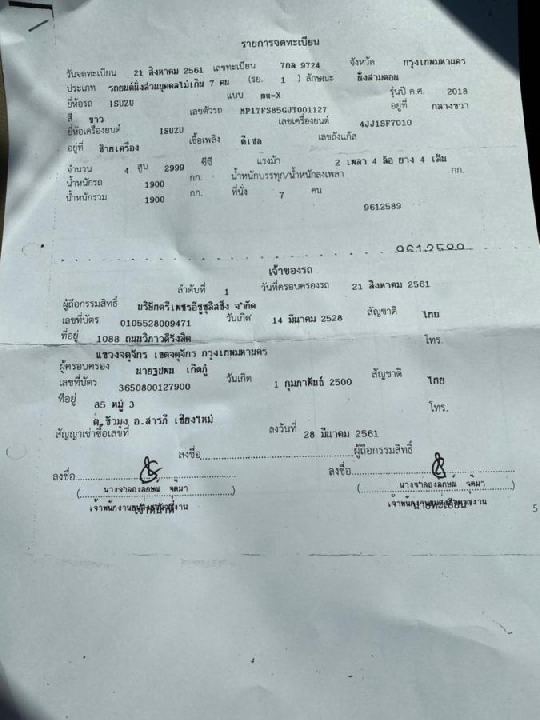 รายการจดทะเบียน
วันจดทะเบียน 21 สิงหาคม 2561 เลขทะเบียน 7กล 9724 จังหวัด กรุงเทพมหานคร
ประเภท รถยนต์นั่งส่วนบุคคลไม่เกิน 7 คน (รย. 1 ) ลักษณะ นั่งสามตอน
ยี่ห้อรถ ISUZU แบบ mu-X รุ่นปี ค.ศ. 2018
สี ขาว เลขตัวรถ MP1TFS85GJT001127 อยู่ที่ กลางขวา
ยี่ห้อเครื่องยนต์ ISUZU เลขเครื่องยนต์ 4JJ1SF7010
อยู่ที่ ซ้ายเครื่อง เชื้อเพลิง ดีเซล เลขถังแก๊ส
จำนวน 4 สูบ 2999 ซีซี แรงม้า 2 เพลา 4 ล้อ ยาง 4 เส้น
น้ำหนักรถ 1900 กก. น้ำหนักบรรทุก/น้ำหนักลงเพลา กก.
น้ำหนักรวม 1900 กก. ที่นั่ง 7 คน
9612589
9612589
เจ้าของรถ
ลำดับที่ 1 วันที่ครอบครองรถ 21 สิงหาคม 2561
ผู้ถือกรรมสิทธิ์ บริษัทตรีเพชรอีซูซุลิสซิ่ง จำกัด
เลขที่บัตร 0105528009471 วันเกิด 14 มีนาคม 2528 สัญชาติ ไทย
ที่อยู่ 1088 ถนนวิภาวดีรังสิต โทร.
แขวงจตุจักร เขตจตุจักร กรุงเทพมหานคร
ผู้ครอบครอง
เลขที่บัตร 3650800127900 วันเกิด 1 กุมภาพันธ์ 2500 สัญชาติ ไทย
ที่อยู่ 85 หมู่ 3 โทร.
อ.สารภี เชียงใหม่
สัญญาเช่าซื้อเลขที่ ลงวันที่ 28 มีนาคม 2561
ลงชื่อ ผู้ถือกรรมสิทธิ์
ลงชื่อ ลงชื่อ
5